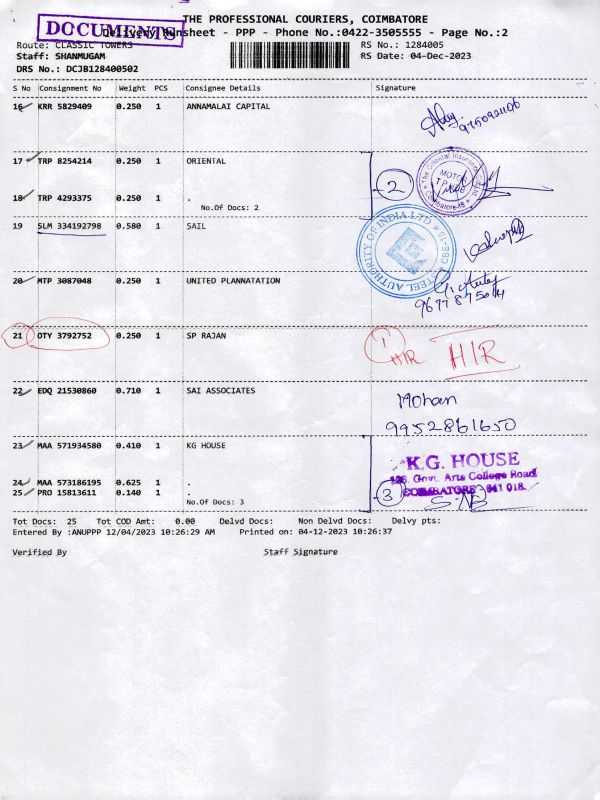 THE PROFESSIONAL COURIERS, COIMBATORE
DOCUMENTS
Delivery Runsheet - PPP - Phone No.:0422-3505555 - Page No.:2
Route: CLASSIC TOWERS RS No.: 1284005
Staff: SHANMUGAM RS Date: 04-Dec-2023
DRS No.: DCJB128400502
S No Consignment No Weight PCS Consignee Details Signature
16 KRR 5829409 0.250 1 ANNAMALAI CAPITAL
17 TRP 8254214 0.250 1 ORIENTAL
The Oriental Insurance
MOTOR
Coimbatore-18
2
18 TRP 4293375 0.250 1 .
No.Of Docs: 2
19 SLM 334192798 0.580 1 SAIL
STEEL AUTHORITY OF INDIA LTD CBE-18
20 MTP 3087048 0.250 1 UNITED PLANNATATION
21 OTY 3792752 0.250 1 SP RAJAN
1 HIR HIR
22 EDQ 21530860 0.710 1 SAI ASSOCIATES Mohan
9952861650
23 MAA 571934580 0.410 1 KG HOUSE
K.G. HOUSE
Govt. Arts College Road
COIMBATORE 641 018.
3
24 MAA 573186195 0.625 1 .
25 PRO 15813611 0.140 1 .
No.Of Docs: 3
Tot Docs: 25 Tot COD Amt: 0.00 Delvd Docs: Non Delvd Docs: Delvy pts:
Entered By :ANUPPP 12/04/2023 10:26:29 AM Printed on: 04-12-2023 10:26:37
Verified By Staff Signature